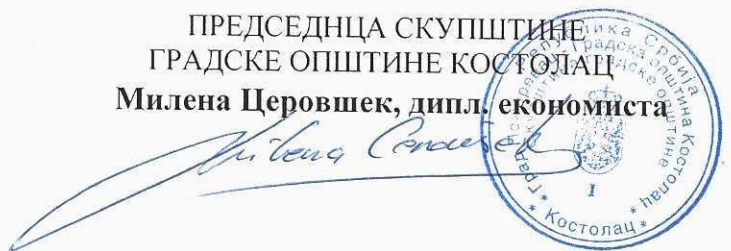 ПРЕДСЕДНЦА СКУПШТИНЕ
ГРАДСКЕ ОПШТИНЕ КОСТОЛАЦ
Милена Церовшек, дипл. економиста
Република Србија
Градска општина Костолац
I
* Костолац *